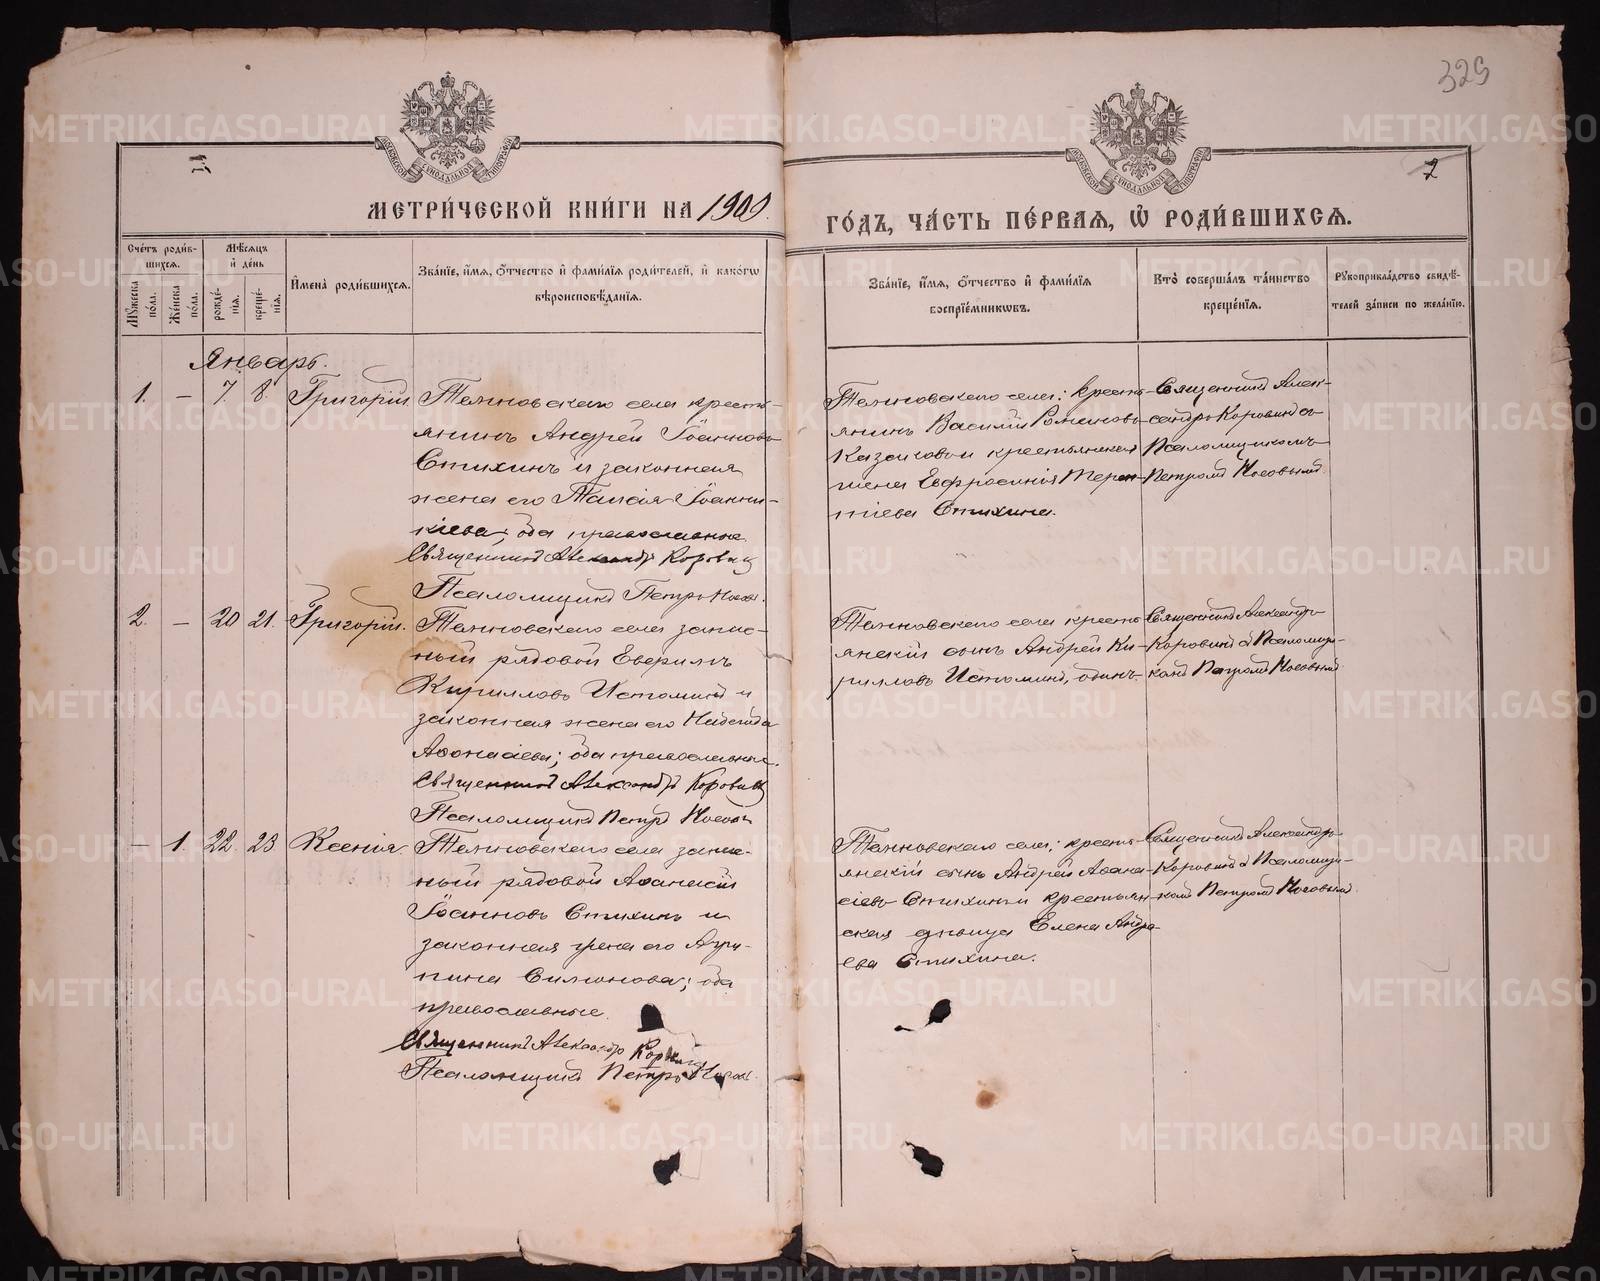 329
2
МЕТРИ́ЧЕСКОЙ КНИ́ГИ НА 1900
ГО́ДЪ, ЧА́СТЬ ПЕ́РВАЯ, Ѽ РОДИ́ВШИХСЯ.
Сче́тъ роди́в-
шихся.
Му́жеска по́ла.
Же́нска по́ла.
Мѣ́сяцъ
и де́нь
рожде́-
нїя.
креще́-
нїя.
Имена̀ роди́вшихся.
Зва́нїе, и́мя, о́тчество и фами́лїя роди́телей, и како́гѡ
вѣроисповѣ́данїя.
Зва́нїе, и́мя, о́тчество и фами́лїя
воспрїе́мникѡвъ.
Кто̀ соверша́лъ та́инство
креще́нїя.
Рꙋкоприкла́дство свидѣ́-
телей за́писи по жела́нїю.
Январь.
1. – 7. 8. Григорій.
села кресть-
янинъ Андрей Іоанновъ
Стихинъ и законная
жена его Таисія Іоанни-
кіева; оба православные
Священникъ Александръ Коровинъ
Псаломщикъ Петръ Носовъ.
села: кресть-
янинъ Василій
Казаковъ и крестьянская
жена Евфросинія Терен-
тіева Стихина.
Священникъ Алек-
сандръ Коровинъ съ
Псаломщикомъ
Петромъ Носовымъ
2. – 20 21. Григорій.
села запас-
ный рядовой
Кирилловъ Истоминъ и
законная жена его Надежда
Аѳонасіева; оба православные.
Священникъ Александръ Коровинъ
Псаломщикъ Петръ Носовъ
села кресть-
янскій сынъ Андрей Ки-
рилловъ Истоминъ, одинъ.
Священникъ Александръ
Коровинъ съ Псаломщи-
комъ Петромъ Носовымъ
– 1. 22. 23 Ксенія.
села запас-
ный рядовой Аѳанасій
Іоанновъ Стихинъ и
законная жена его Агри-
пина оба
православные.
Священникъ Александръ Коровинъ
Псаломщикъ Петръ Носовъ.
села: кресть-
янскій сынъ Андрей Аѳана-
сіевъ Стихинъ и крестьян-
ская дѣвица Елена Андре-
ева Стихина.
Священникъ Александръ
Коровинъ съ Псаломщи-
комъ Петромъ Носовымъ
METRIKI.GASO-URAL.RU